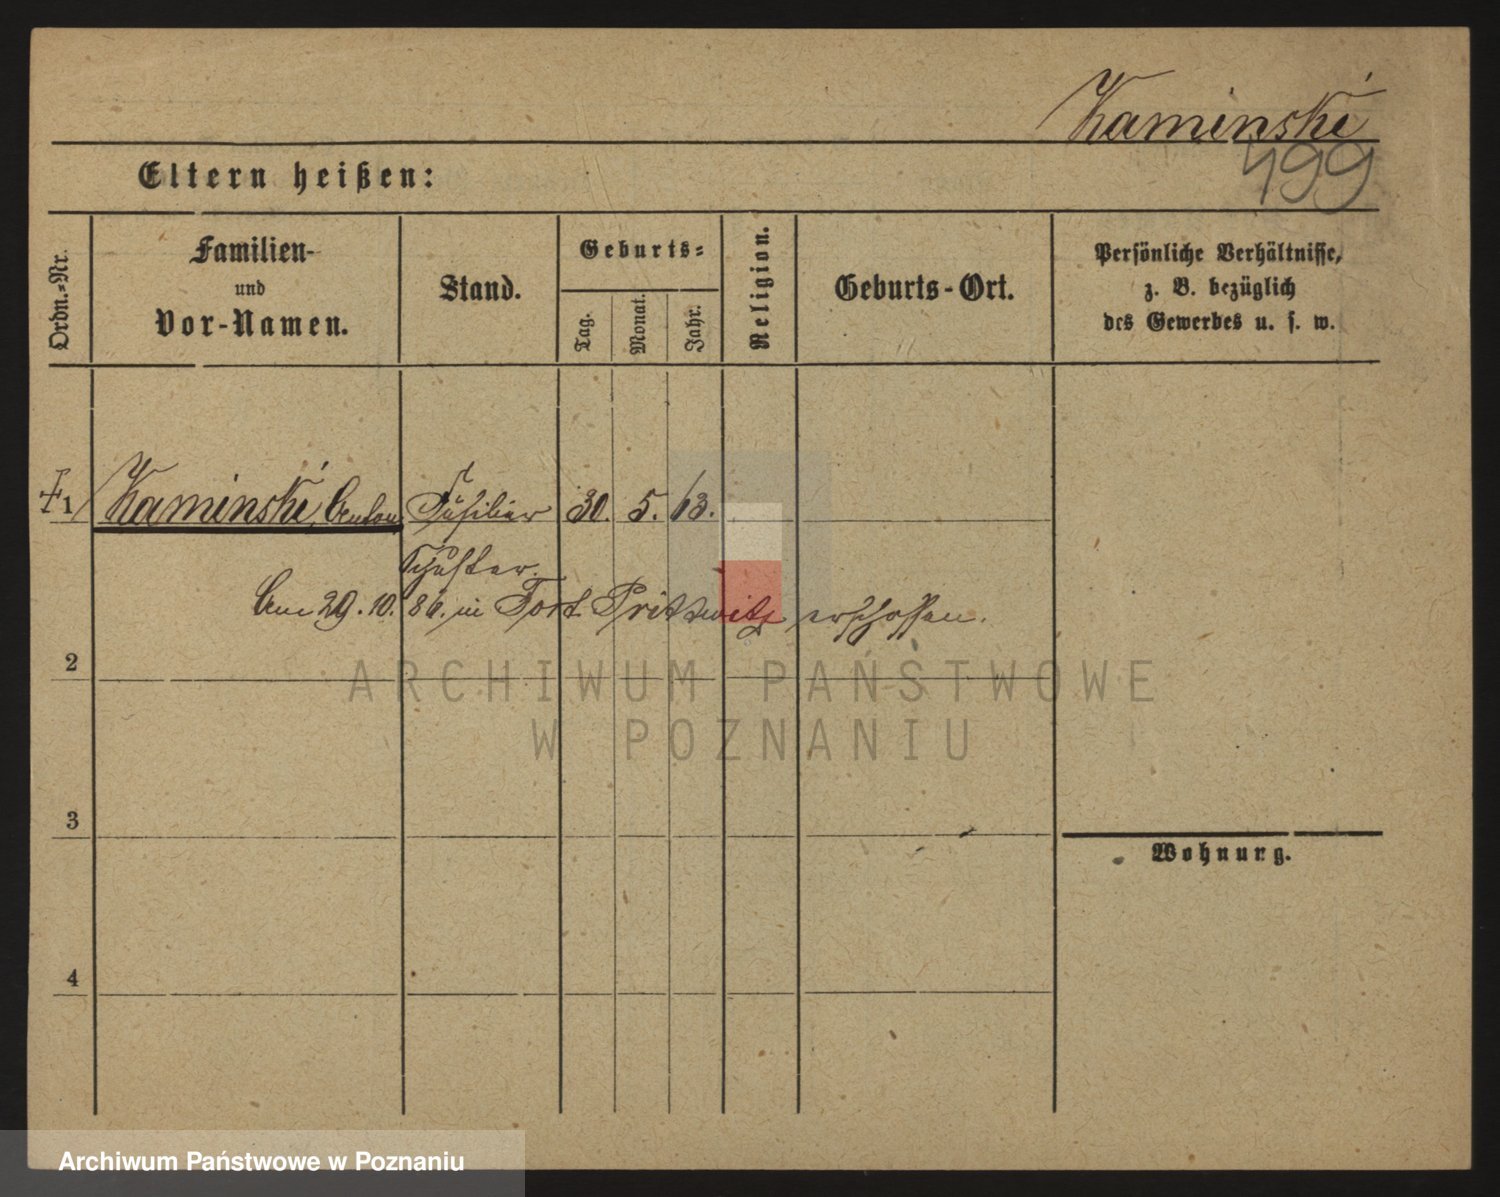 Kaminski
499
Eltern heißen:
Ordn.-Nr.
Familien-
und
Vor-Namen.
Stand.
Geburts-
Tag.
Monat.
Jahr.
Religion.
Geburts-Ort.
Persönliche Verhältnisse,
z. B. bezüglich
des Gewerbes u. s. w.
1 Kaminski, Anton Füsilier 30. 5. 63.
Schuster.
Am 29. 10. 86. in Fort Prittwitz erschossen.
2
ARCHIWUM PAŃSTWOWE
W POZNANIU
3
Wohnung.
4
Archiwum Państwowe w Poznaniu